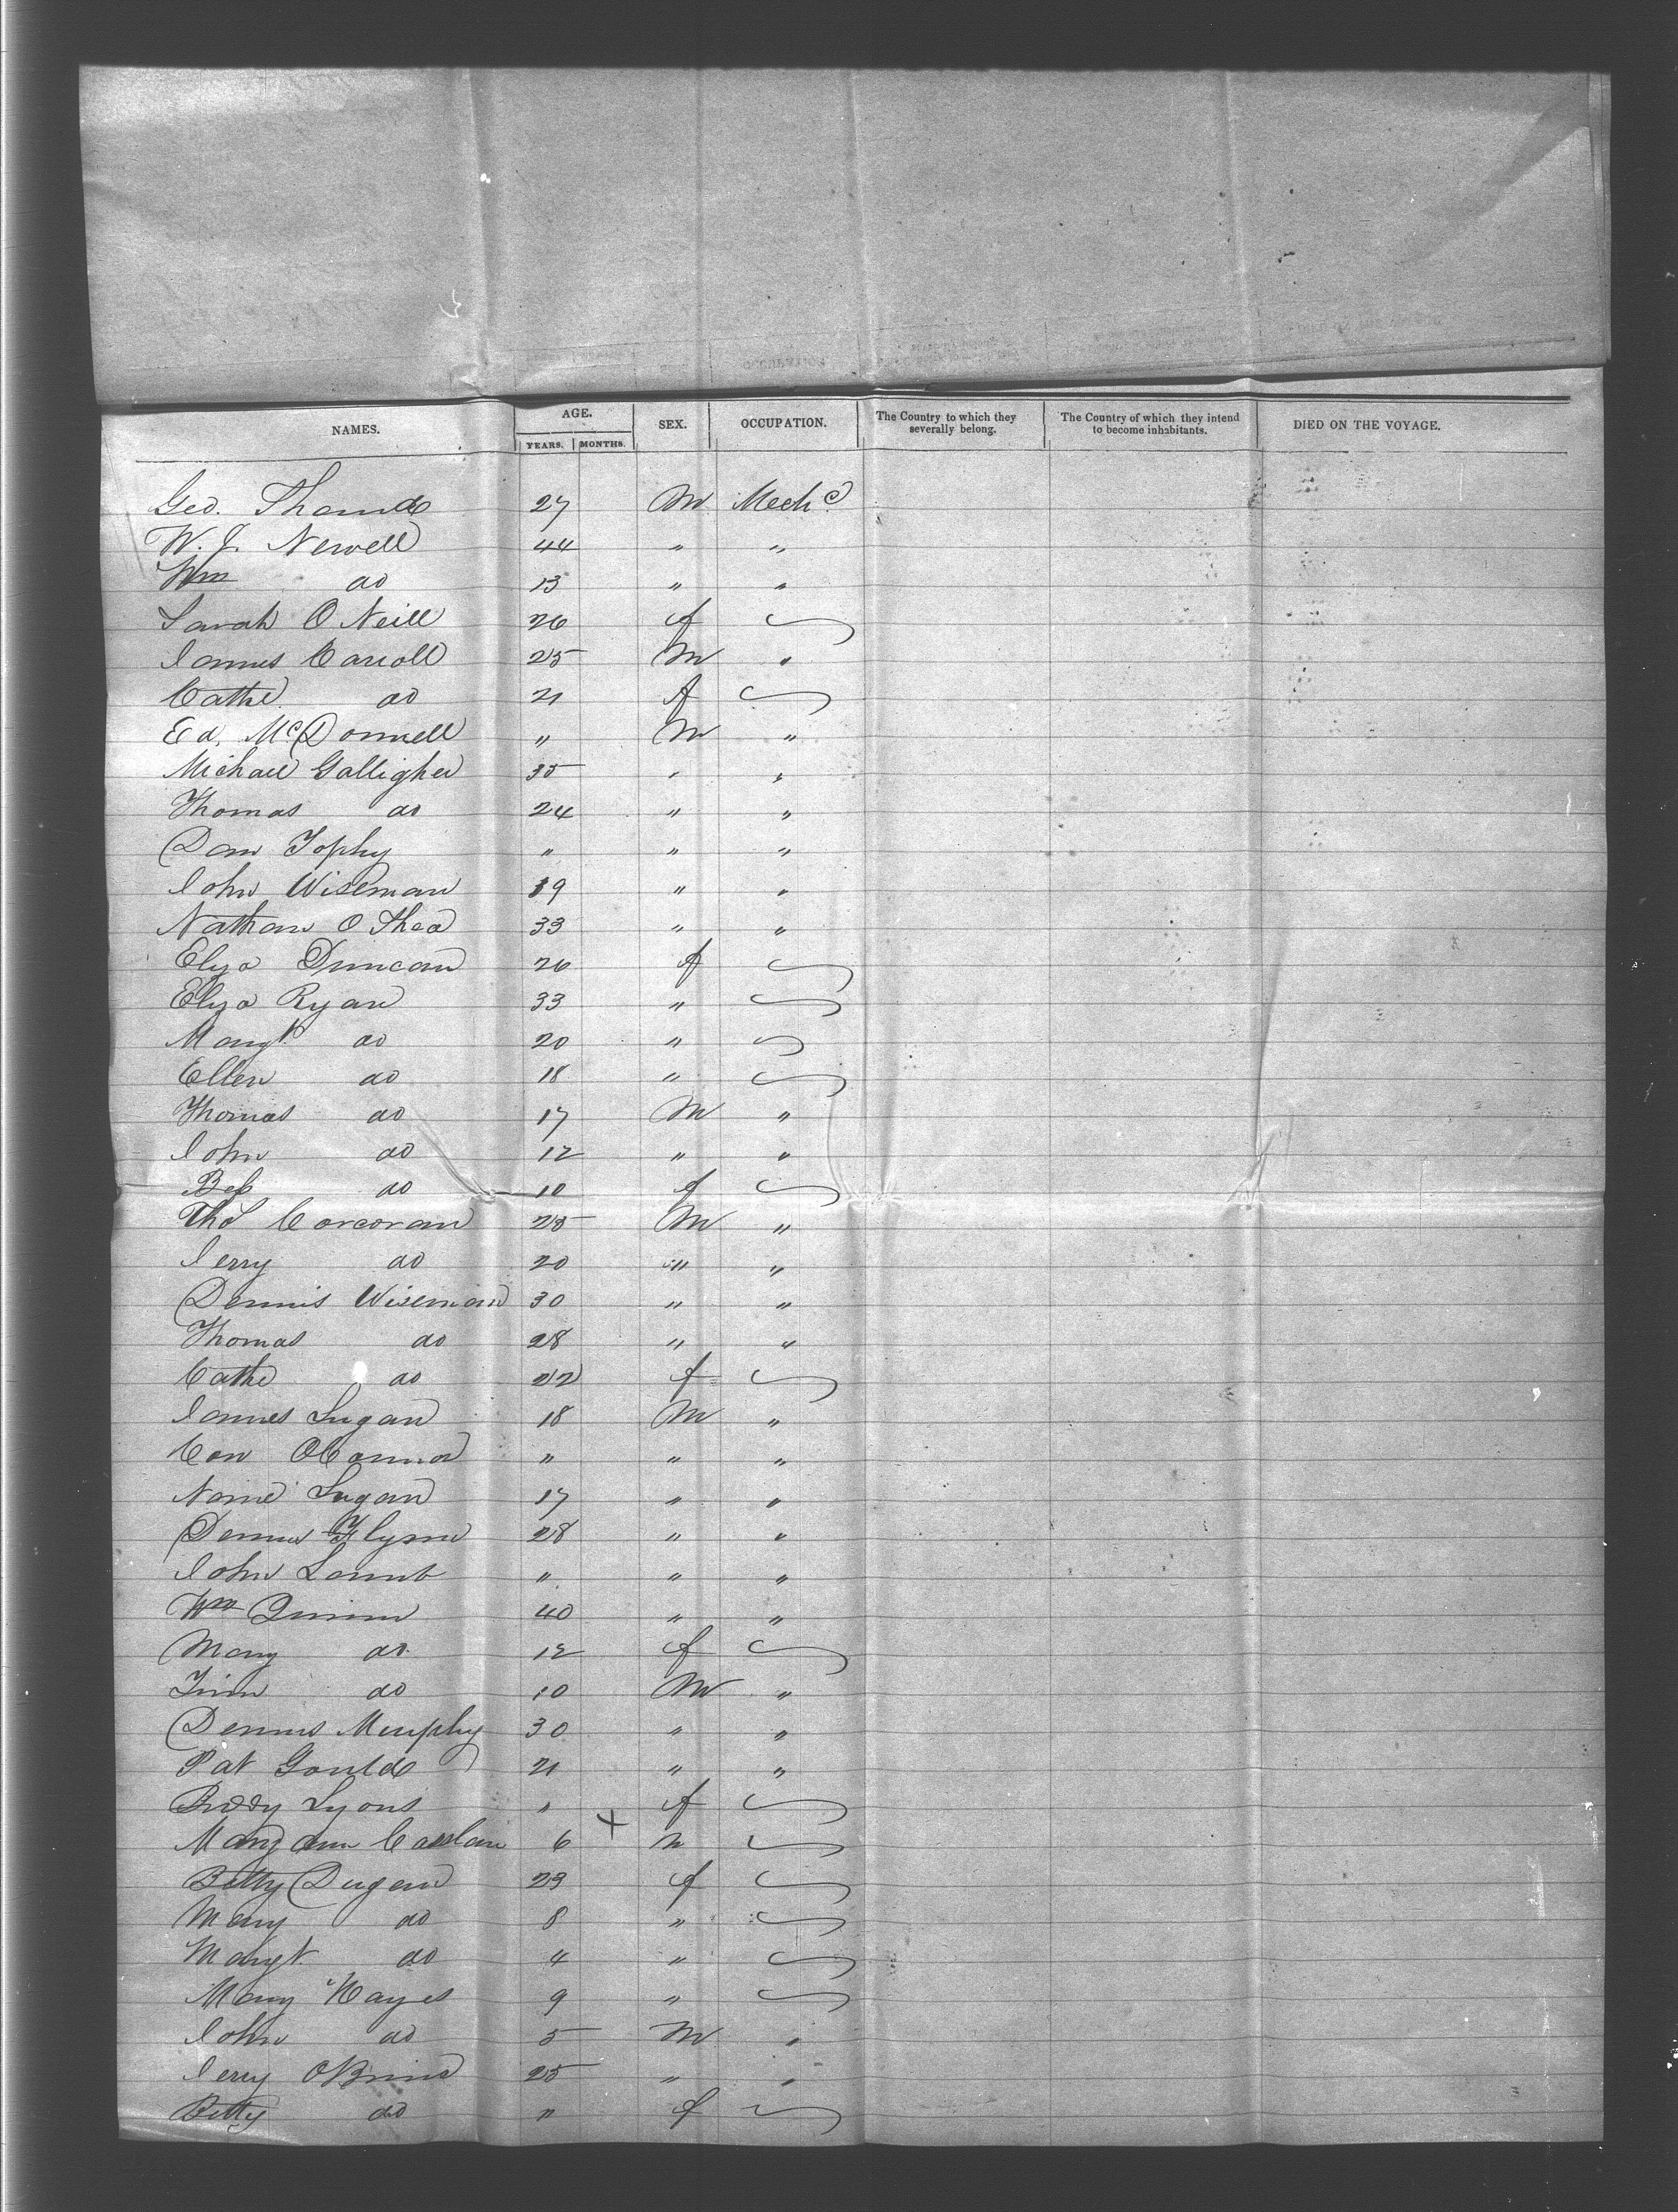 NAMES. AGE. SEX. OCCUPATION. The Country to which they severally belong. The Country of which they intend to become inhabitants. DIED ON THE VOYAGE.
YEARS. MONTHS.
Geo. 27 M Mechc
W. J. Newell 44 " "
Wm do 13 " "
Sarah O Neill 26 f
James Carroll 25 M "
Cathe do 21 f
Ed. McDonnell " M "
Michael Galligher 35 " "
Thomas do 24 " "
Dan Tophy " " "
John Wiseman 19 " "
Nathan O Shea 33 " "
Eliza Duncan 26 f
Eliza Ryan 33 "
Margt do 20 "
Ellen do 18 "
Thomas do 17 M "
John do 12 " "
Bess do 10 f
Thos Corcoran 25 M "
Jerry do 20 " "
Dennis Wiseman 30 " "
Thomas do 28 " "
Cathe do 22 f
James Lugan 18 M "
Con OConnor " " "
Lugan 17 " "
Dennis Flynn 28 " "
John Lamb " " "
Wm Quinn 40 " "
Mary do 12 f
Tim do 10 M "
Dennis Murphy 30 " "
Pat Gould 21 " "
Biddy Lyons " f
Mary ann 6 +
Betty Dugan 23 f
Mary do 8 "
Margt do 4 "
Mary Hayes 9 "
John do 5 M "
Jerry OBrine 25 " "
Betty do " f